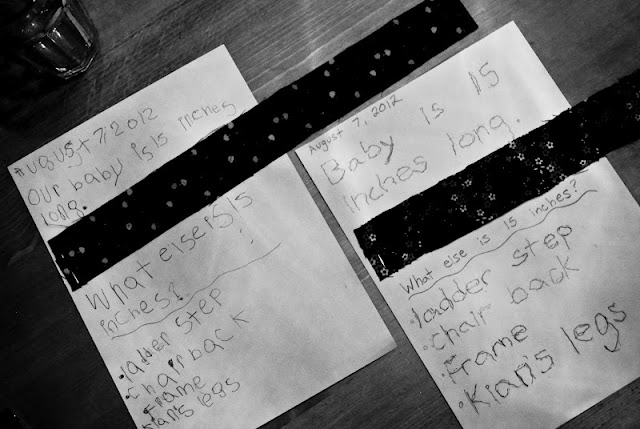 August 7, 2012
Our baby is 15 inches
long.
What else is 15
inches?
• ladder step
• chair back
Frame
Kian's legs
August 7, 2012
Baby is 15
inches long.
What else is 15 inches?
• ladder step
• chair back
• Frame
• Kian's legs